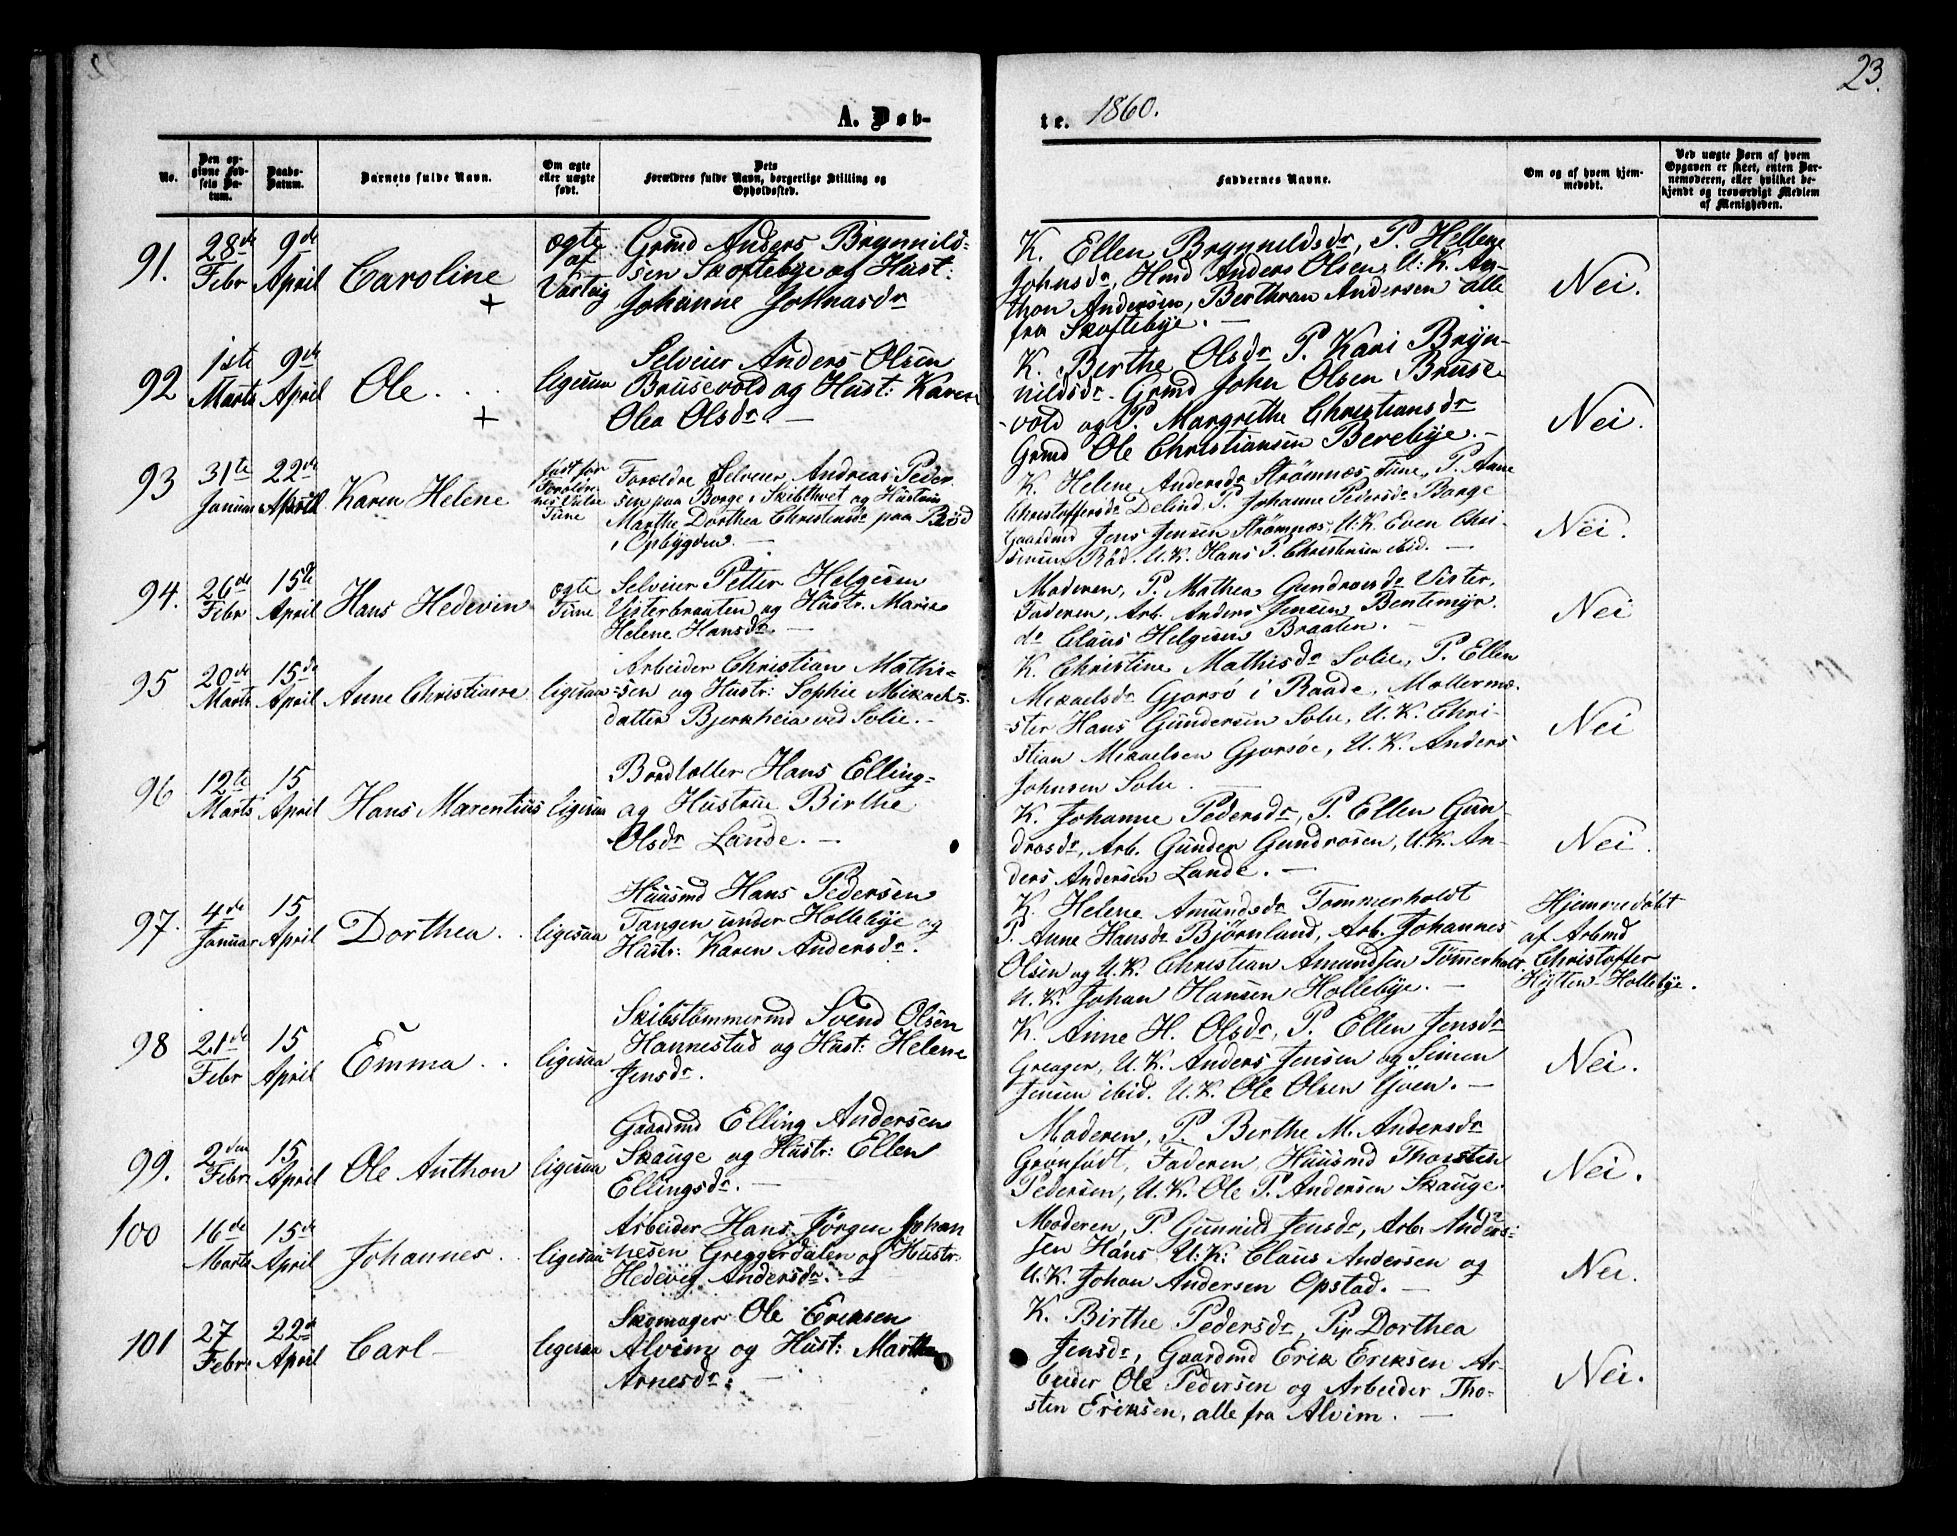 23.
A. Døb-
te. 1860.
No.
Den op-
givne Fød-
sels Da-
tum.
Daabs-
Datum.
Barnets fulde Navn.
Om ægte
eller uægte
født.
Dets
Forældres fulde Navn, borgerlige Stilling og
Opholdssted.
Faddernes Navne.
Om og af hvem hjem-
medøbt.
Ved uægte Børn af hvem
Opgaven er skeet, enten Bar-
nemoderen, eller hvilket be-
kjendt og troværdigt Medlem
af Menigheden.
91.
28de
Febr
9de
April
Caroline
+
ægte
af
Varteig
Grmd Anders Brynnild-
sen Skoftebye og Hust:
Johanne Johnasdr
K. Ellen Brynnildsdr, P. Hellene
Johnsdr, Hmd Anders Olsen, U.K. An-
thon Andersen, Berthran Andersen alle
fra Skoftebye. –
Nei.
92
1ste
Marts
9de
April
Ole.
+
ligesaa
Selveier Anders Olsen
Brusevold og Hust: Karen
Olea Olsdr. –
K. Berthe Olsdr P. Kari Bryn-
nildsdr. Grmd John Olsen Bruse-
vold og P. Margrethe Christiansdr
Grmd Ole Christiansen Berebye. –
Nei.
93
31te
Januar
22de
April
Karen Helene
født for
Foreldre-
nes
Tune
Forældre Selveier Andreas Peder-
sen paa Borge i Skibthvet og Hustru
Marthe Dorthea Christensdr paa Rød
i Opbygden. –
K. Helene Andersdr Strømnæs Tune, P. Anne
Christoffersdr Delind. P. Johanne Pedersdr Borge
Gaardmd Jens Jensen Strømnæs, U.K. Even Chri-
stensen Rød. U.K. Hans P. Christensen ibid. –
Nei.
94.
26de
Febr
15de
April
Hans Hedevin
ægte
Tune
Selveier Petter Helgesen
Visterbraaten og Hustr. Maria
Helene Hansdr. –
Moderen, P. Mathea Gundrosdr Vister,
Faderen, Arb. Anders Jensen Bentemyr.
do Claus Helgesen Braaten. –
Nei
95
20de
Marts
15de
April
Anne Christiane
ligesaa
Arbeider Christian Mathi-
sen og Hustr: Sophie Mikaels-
datter Bjerkheia ved Solie. –
K. Christine Mathisdr Solie, P. Ellen
Mikaelsdr Gjorsø i Raade, Møllerme-
ster Hans Gundersen Solie, U.K. Chri-
stian Mikaelsen Gjorsøe, U.K. Anders
Johnsen Solie. –
Nei
96
12te
Marts
15
April
Hans Marentius
ligesaa
Bordtoller Hans Elling-
og Hustrue Birthe
Olsdr Lande. –
K. Johanne Pedersdr, P. Ellen Gun-
drosdr, Arb. Gunder Gundrosen, U.K. An-
ders Andersen Lande. –
Nei.
97.
4de
Januar
15
April
Dorthea.
ligesaa
Huusmd Hans Pedersen
Tangen under Hollebye og
Hustr: Karen Andersdr.
K. Helene Amundsdr Tommerholdt
P. Anne Hansdr Bjørnland, Arb. Johannes
Olsen og U.K. Christian Amundsen Tømmerholt.
U.K. Johan Hansen Hollebye. –
Hjemmedøbt
af Arbmd
Christoffer
Hytten Hollebye.
98
21de
Febr
15
April
Emma.
ligesaa
Skibstømmermd Svend Olsen
Hannestad og Hust: Helene
Jensdr.
K. Anne H. Olsdr, P. Ellen Jensdr
Greager, U.K. Anders Jensen og Simen
Jensen ibid. U.K. Ole Olsen Goen. –
Nei.
99.
2den
Febr
15
April
Ole Anthon
ligesaa
Gaardmd Elling Andersen
Skauge og Hustr: Ellen
Ellingsdr. –
Moderen, P. Berthe M. Andersdr
Grønfødt, Faderen, Huusmd Thorsten
Pedersen, U.K. Ole P. Andersen Skauge.
Nei.
100
16de
Marts
15de
April
Johannes.
ligesaa
Arbeider Hans Jørgen Johan
nesen Greggerdalen og Hustr.
Hedevig Andersdr. –
Moderen, P. Gunnild Jensdr, Arb. Anders-
sen Hans U.K: Claus Andersen og
U.K. Johan Andersen Opstad. –
Nei.
101
27
Febr
22de
April
Carl –
ligesaa
Skomager Ole Eriksen
Alvim og Hust: Marthe
Arnesdr: –
K. Birthe Pedersdr, Pig. Dorthea
Jensdr, Gaardmd Erik Eriksen Ar-
beider Ole Pedersen og Arbeider Tho-
sten Eriksen, alle fra Alvim. –
Nei.